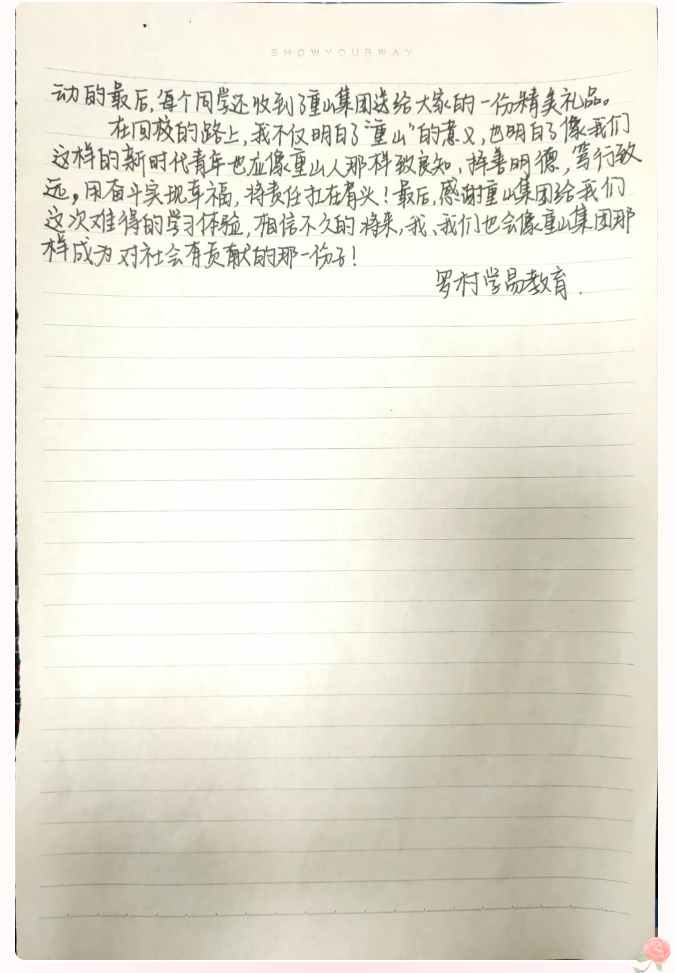 SHOWYOURWAY
动的最后,每个同学还收到了重山集团送给大家的一份精美礼品。
在回校的路上,我不仅明白了“重山”的意义,也明白了像我们
这样的新时代青年也应像重山人那样致良知、择善明德,笃行致
远,用奋斗实现幸福,将责任扛在肩头!最后,感谢重山集团给我们
这次难得的学习体验,相信不久的将来,我、我们也会像重山集团那
样成为对社会有贡献的那一份子!
罗村学易教育.